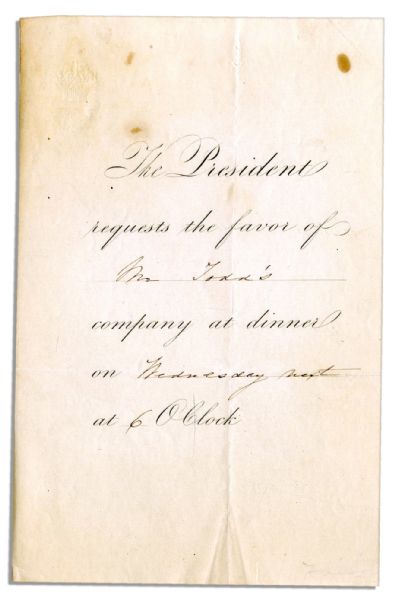 The President
requests the favor of
Mr Todd's
company at dinner
on Wednesday next
at 6 O'Clock